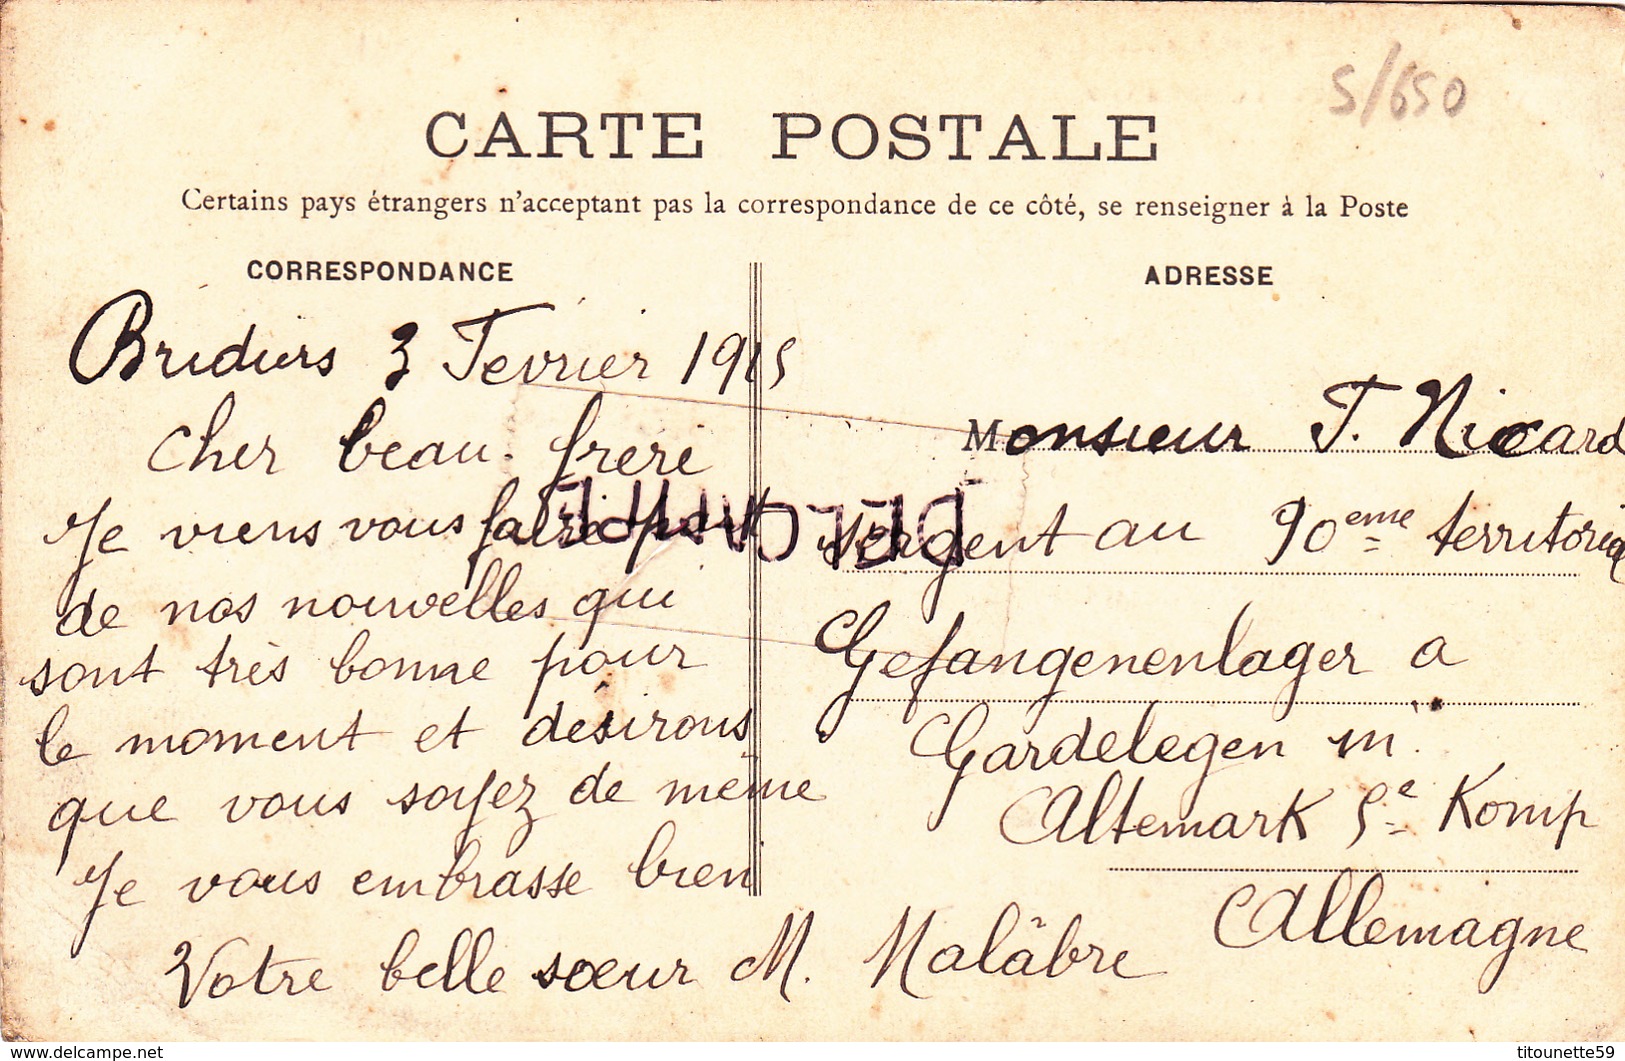 S/650
CARTE POSTALE
Certains pays étrangers n'acceptant pas la correspondance de ce côté, se renseigner à la Poste
CORRESPONDANCE
Bridiers 3 Fevrier 1915
Cher beau-frere
Je viens vous faire part
de nos nouvelles qui
sont très bonne pour
le moment et désirons
que vous soyez de même
Je vous embrasse bien
Votre belle sœur M. Malâbre
ADRESSE
Monsieur F. Nicard
sergent au 90eme territorial
Gefangenenlager a
Gardelegen in
Altemark 5e Komp
Allemagne
www.delcampe.net
titounette59